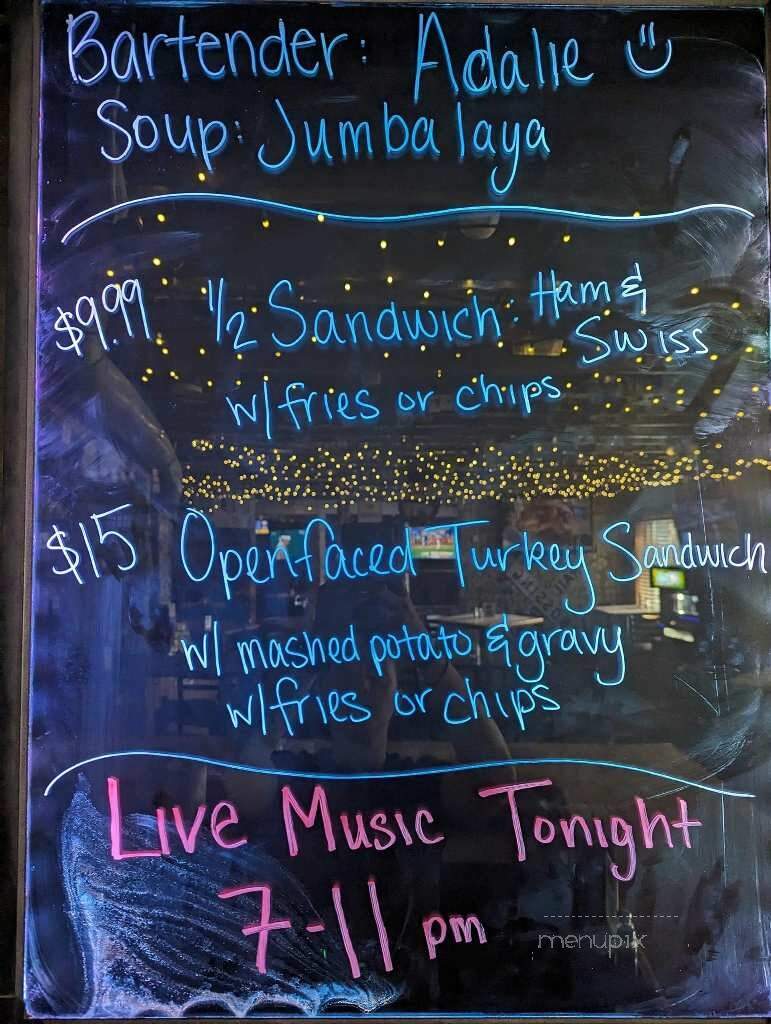 Bartender: Adalie
Soup: Jumbalaya
$9.99 1/2 Sandwich: Ham &
Swiss
w/ fries or chips
$15 Openfaced Turkey Sandwich
w/ mashed potato & gravy
w/ fries or chips
Live Music Tonight
7-11 pm
menupix